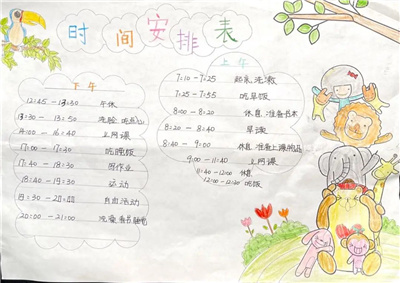 时间安排表
下午
12:45 - 13:30 午休
13:30 - 13:50 洗脸 吃点心
14:00 - 16:40 上网课
17:00 - 17:30 吃晚饭
17:40 - 18:30 写作业
18:40 - 19:30 运动
19:30 - 自由活动
20:00 - 21:00 洗漱 看书睡觉
上午
7:10 - 7:25 起床洗漱
7:25 - 7:55 吃早饭
8:00 - 8:20 休息 准备书本
8:20 - 8:40 早读
8:40 - 9:00 休息 准备上课用品
9:00 - 11:40 上网课
11:40 - 12:00 休息
12:00 - 12:20 吃饭